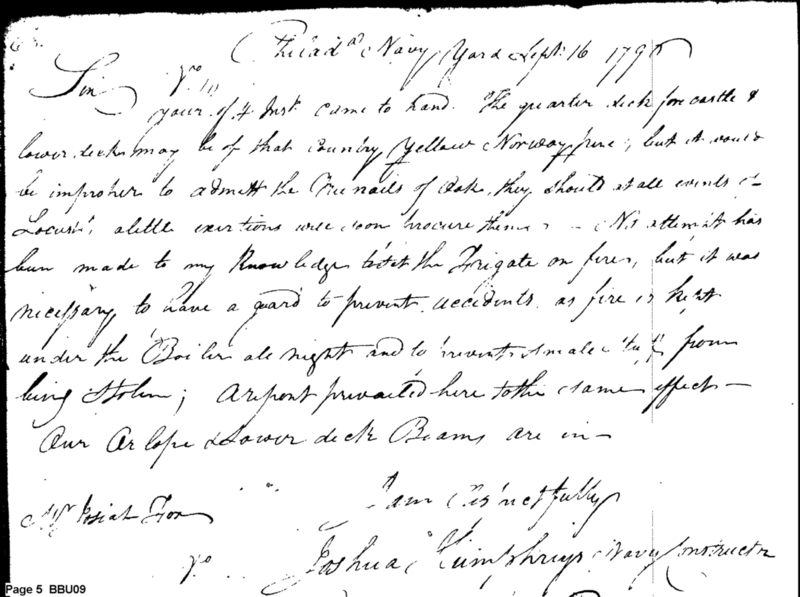 Philad.a Navy Yard Sept. 16 1796
Sir
your of 4 Inst. came to hand. The quarter deck forecastle &
lower decks may be of that Country Yellow Norway pine, but it would
be improper to admitt the Treenails of Oak, they should at all events
Locust, alittle exertions will soon procure them — No attempt has
been made to my Knowledge to set the Frigate on fire, but it was
necessary to have a guard to prevent accidents as fire is kept
under the Boiler all night and to prevent small from
being Stolen; A report prevailed here to the same effect —
Our Orlope & Lower deck Beams are in —
I am Respectfully
Mr. Josiah Fox
Joshua Humphreys Navy Constructor
Page 5 BBU09